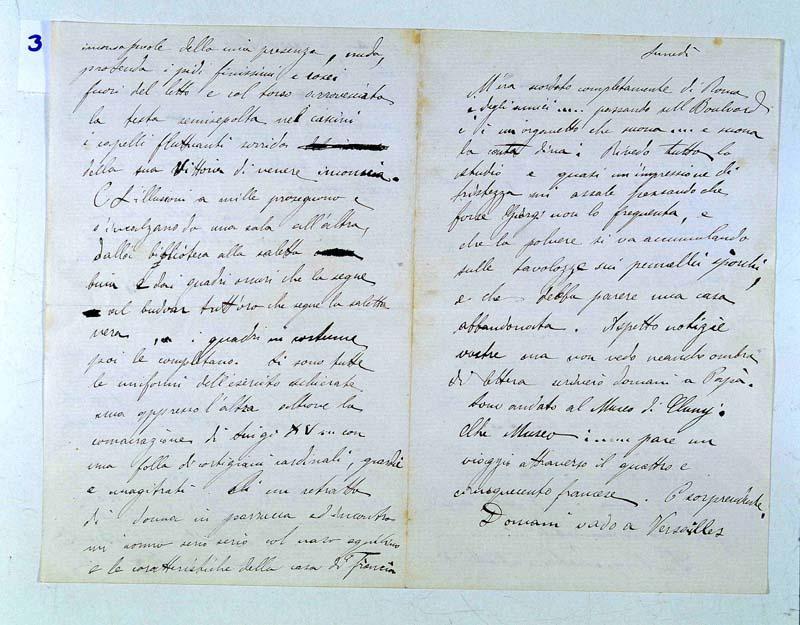 3
inconsapevole della mia presenza, nuda,
protenda i piedi finissimi e rosei
fuori del letto e col torso arrovesciato
la testa semisepolta nei cuscini
i capelli fluttuanti sorrida
della sua vittoria di venere inconscia.
E L'illusioni a mille proseguono e
s'incalzano da una sala all'altra,
dalla biblioteca alla saletta
buia e dai quadri scuri che la segue
al budoar tutt'oro che segue la saletta
nera, i quadri in costume
poi le completano. Ci sono tutte
le uniformi dell'esercito schierate
una appresso l'altra
di Luigi XV con
una folla di cortigiani cardinali, guardie
e magistrati. un ritratto
di donna in parrucca ed incontro
un uomo serio serio col naso aquilino
e le caratteristiche della casa di Francia
Lunedì
M'era scordato completamente di Roma
e degli amici .... passando sull Boulevard
c'è un organetto che suona ... e suona
la Rivedo tutto lo
studio e quasi un'impressione di
tristezza mi assale pensando che
forse Giorgi non lo frequenta, e
che la polvere si va accumulando
sulle tavolozze sui pennelli sporchi,
e che debba parere una casa
abbandonata. Aspetto notizie
vostre ma non vedo neanche ombra
di lettera scriverò domani a Papà.
Sono andato al Museo di Cluny.
Che Museo ..... pare un
viaggio attraverso il quattro e
cinquecento francese. È sorprendente.
Domani vado a Versailles